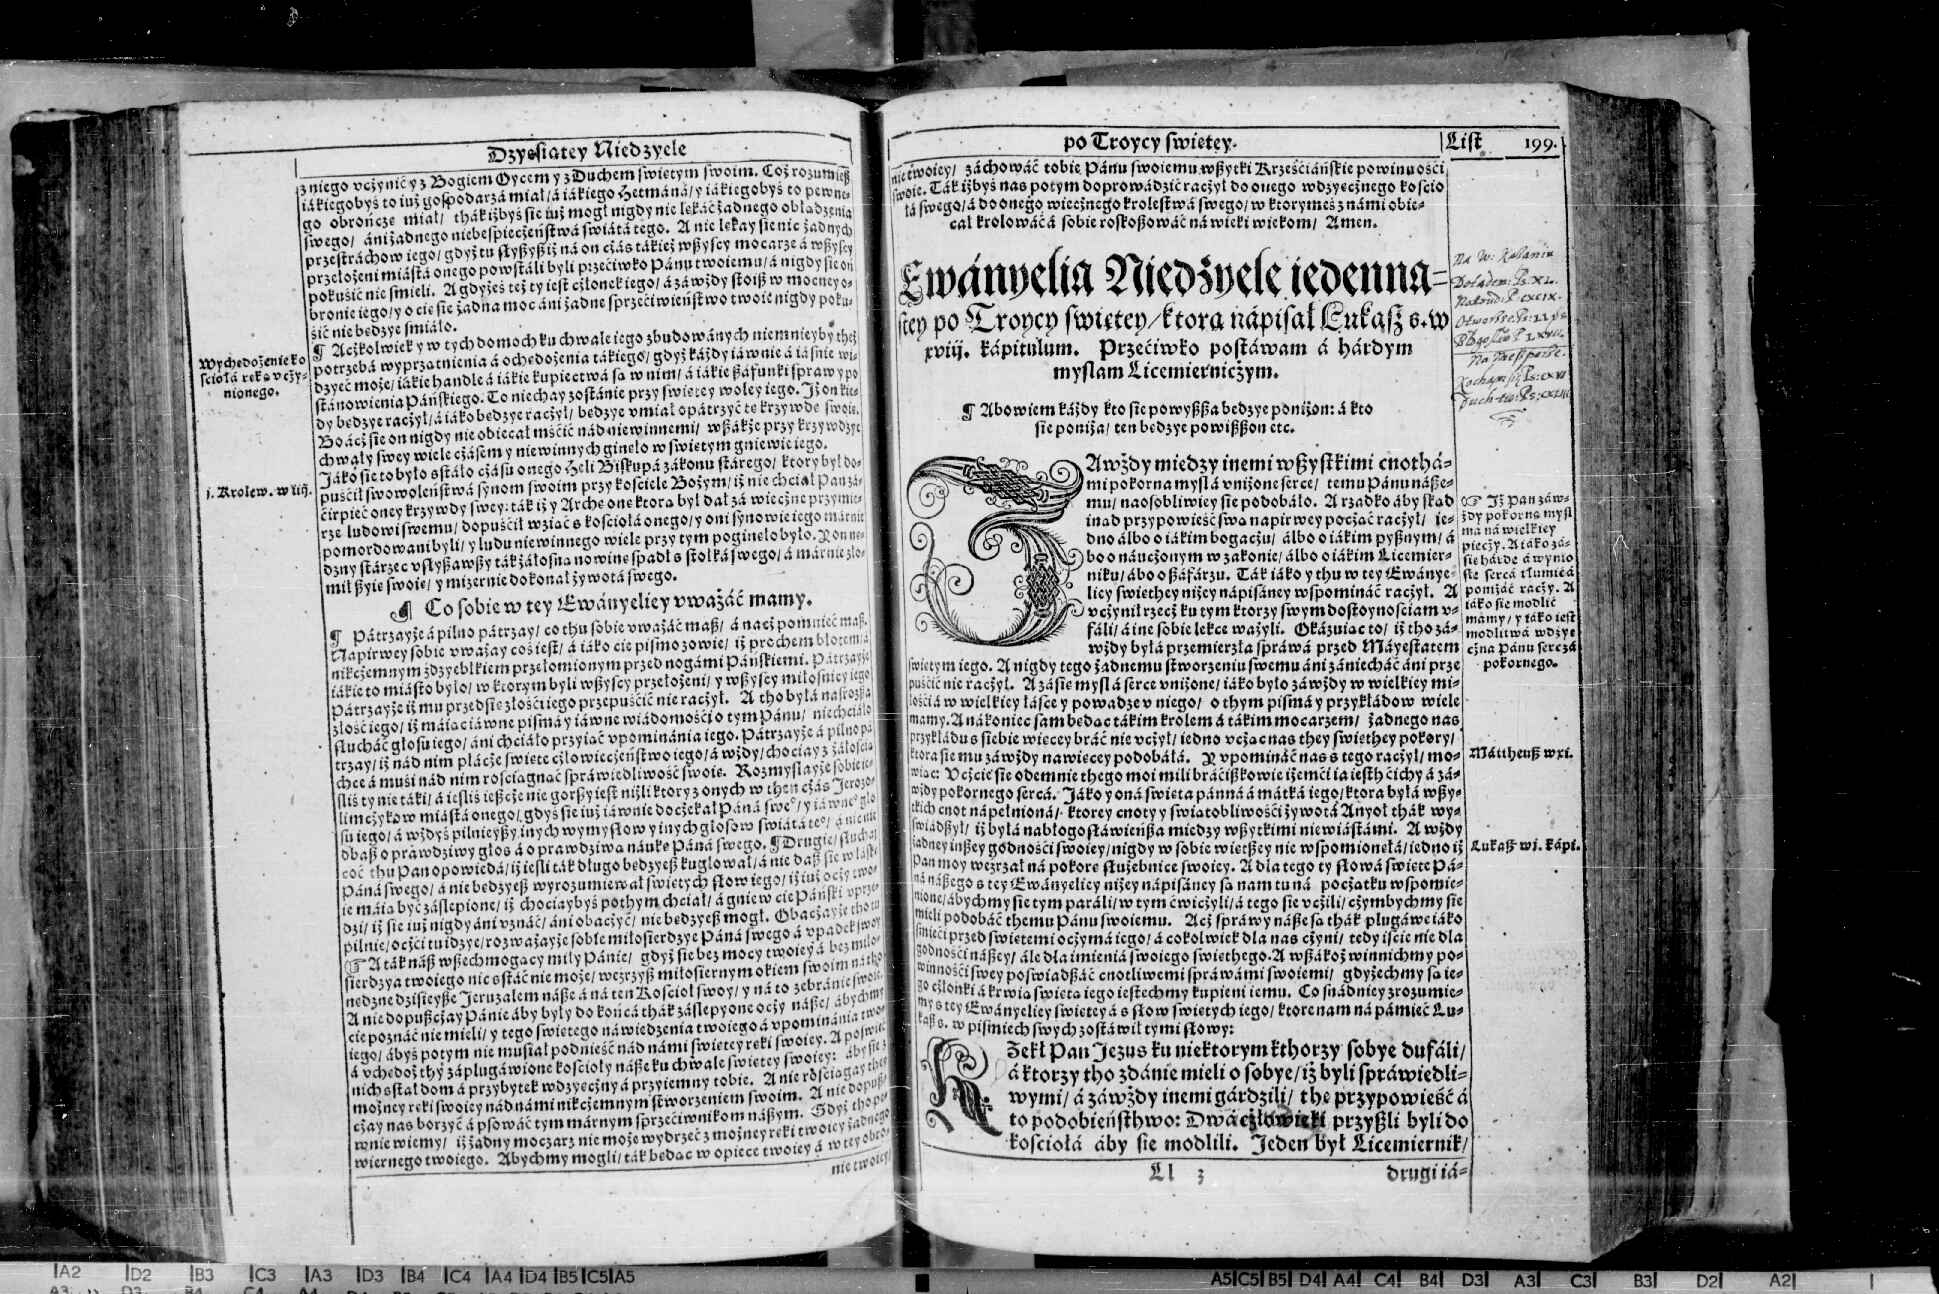 Dzyesiątey Niedzyele
z niego vcżynić y z Bogiem Oycem y z Duchem swiętym swoim. Coż rozumiesz
iákiegobyś to iuż gospodarzá miał/ á iákiego Hetmáná/ y iákiegobyś to pewne-
go obrończę miał/ thák iżbyś sie iuż mogł nigdy nie lękáć żadnego obłądzenia
swego/ áni żadnego niebespiecżeństwá świátá tego. A nie lękay sie nic żadnych
przestráchow iego/ gdyż tu słyszysz iż ná on cżás tákież wszyscy mocarze á wszyscy
przełożeni miástá onego powstáli byli przećiwko Pánu twoiemu/ á nigdy sie oń
pokuśić nie śmieli. A gdyżeś też ty iest cżłonek iego/ á záwżdy stoisz w mocney o-
bronie iego/ y o cię sie żadna moc áni żadne sprzećiwieństwo twoie nigdy poku-
śić nie będzye śmiáło.
¶ Acżkolwiek y w tych domoch ku chwale iego zbudowánych niemnieyby też
potrzebá wyprzątnienia á ochędożenia tákiego/ gdyż káżdy iáwnie á iáśnie wi-
dzyeć może/ iákie hándle á iákie kupiectwá są w nim/ á iákie száfunki spraw y po
stánowienia Páńskiego. To niechay zostánie przy świętey woley iego. Iż on kie-
dy będzye racżył/ á iáko będzye racżył/ będzye vmiał opátrzyć tę krzywdę swoię.
Bo ácż sie on nigdy nie obiecał mśćić nád niewinnemi/ wszákże przy krzywdzye
chwały swey wiele cżásem y niewinnych ginęło w świętym gniewie iego.
Jáko sie to było sstáło cżásu onego Heli Biskupá zakonu stárego/ ktory był do-
puśćił swowoleństwá synom swoim przy kościele Bożym/ iż nie chciał Pan zá-
ćirpieć oney krzywdy swey: ták iż y Archę onę ktorą był dał zá wiecżne przymie-
rze ludowi swemu/ dopuśćił wziąć s kościołá onego/ y oni synowie iego márnie
pomordowani byli/ y ludu niewinnego wiele przy tym poginęło było. Y on nę-
dzny stárzec vsłyszawszy ták żáłosną nowinę spadł s stołká swego/ á márnie zło-
mił szyię swoię/ y mizernie dokonał żywotá swego.
¶ Co sobie w tey Ewányeliey vważáć mamy.
¶ Pátrzayże á pilno pátrzay/ co thu sobie vważáć masz/ á nacż pomnieć masz.
Napirwey sobie vważay coś iest/ á iáko cię pismo zowie/ iż prochem błotem/ á
nikcżemnym zdzyebłkiem przełomionym przed nogámi Páńskiemi. Pátrzayże
iákie to miásto było/ w ktorym byli wszyscy przełożeni/ y wszyscy miłośnicy iego
Pátrzayże iż mu przedsię złośći iego przepuśćić nie racżył. A tho byłá nasroższa
złość iego/ iż máiąc iáwne pismá y iáwne wiádomośći o tym Pánu/ niechciáło
słucháć głosu iego/ áni chciáło przyiąć vpominánia iego. Pátrzayże á pilno pá
trzay/ iż nád nim płácże święte cżłowiecżeństwo iego/ á wżdy/ chociay z żáłością
chce á muśi nád nim rośćiągnąć spráwiedliwość swoię. Rozmyślayże sobie ie-
śliś ty nie táki/ á iesliś ieszcże nie gorszy iest niżli ktory z onych w then cżás Jerozo-
limcżykow miástá onego/ gdyś sie iuż iáwnie docżekał Páná sweº/ y iáwneº gło
su iego/ á wżdyś pilnieyszy inych wymysłow y inych głosow świátá teº/ á nic nie
dbasz o prawdziwy głos á o prawdziwą náukę Páná swego. ¶ Drugie/ słuchay
coć thu Pan opowieda/ iż iesli ták długo będzyesz kuglował/ á nie dasz sie w łáskę
Páná swego/ á nie będzyesz wyrozumiewał świętych słow iego/ iż iuż ocży two-
ie máią być záślepione/ iż chociaybyś pothym chciał/ á gniew cię Páński vprze-
dzi/ iż sie iuż nigdy áni vznáć/ áni obacżyć/ nie będzyesz mogł. Obacżayże tho tu
pilnie/ ocżći tu idzye/ rozważayże sobie miłosierdzye Páná swego á vpadek swoy
☞ A ták nász wszechmogący miły Pánie/ gdyż sie bez mocy twoiey á bez miło-
sierdzya twoiego nic sstáć nie może/ weyrzysz miłosiernym okiem swoim ná tho
nędzne dzisieysze Jeruzalem násze á ná ten Kościoł swoy/ y ná to zebránie swoie.
A nie dopuszcżay Pánie áby były do końcá thák záślepyone ocży násze/ ábychmy
cię poznáć nie mieli/ y tego świętego náwiedzenia twoiego á vpominánia two-
iego/ ábyś potym nie musiał podnieść nád námi świętey ręki swoiey. A poświęć
á vchędoż thy záplugáwione kościoły násze ku chwale świętey swoiey: áby sie z
nich sstał dom á przybytek wdzyęcżny á przyiemny tobie. A nie rośćiągay they
możney ręki swoiey nád námi nikcżemnym stworzeniem swoim. A nie dopusz-
cżay nas borzyć á psowáć tym márnym sprzećiwnikom nászym. Gdyż tho pe-
wnie wiemy/ iż żadny mocarz nie może wydrzeć z możney ręki twoiey żadnego
wiernego twoiego. Abychmy mogli/ ták będąc w opiece twoiey á w tey obro-
nie twoiey/
Wychędożenie ko
śćiołá ręką vcży-
nionego.
j. Krolew. w iiij.
po Troycy świętey.
List 199.
nie twoiey/ záchowáć tobie Pánu swoiemu wszytki Krześćiáńskie powinnośći
swoie. Ták iżbyś nas potym doprowádzić racżył do onego wdzyęcżnego kościo
łá swego/ á do onego wiecżnego krolestwá swego/ w ktorymeś z námi obie-
cał krolowáć á sobie roskoszowáć ná wieki wiekom/ Amen.
Ewányelia Niedżyele iedenna-
stey po Troycy świętey/ ktorą nápisał Łukasz s. w
xviij. kápitulum. Przećiwko postáwam á hárdym
myślam Licemiernicżym.
¶ Abowiem káżdy kto sie powyższa będzye poniżon: á kto
sie poniża/ ten będzye powiższon etc.
ZAwżdy między inemi wszystkimi cnothá-
mi pokorna myśl á vniżone serce/ temu Pánu násze-
mu/ naosobliwiey sie podobáło. A rzadko áby skąd
inąd przypowieść swą napirwey pocżąć racżył/ ie-
dno álbo o iákim bogacżu/ álbo o iákim pysznym/ á
bo o náucżonym w zakonie/ álbo o iákim Licemier-
niku/ ábo o száfárzu. Ták iáko y thu w tey Ewánye-
liey świethey niżey nápisáney wspomináć racżył. A
vcżynił rzecż ku tym ktorzy swym dostoynośćiam v-
fáli/ á ine sobie lekce ważyli. Okázuiąc to/ iż tho zá-
wżdy byłá przemierzła spráwá przed Máyestatem
świętym iego. A nigdy tego żadnemu stworzeniu swemu áni zániecháć áni prze
puśćić nie racżył. A zásię myśl á serce vniżone/ iáko było záwżdy w wielkiey mi-
łośći á w wielkiey łásce y powadze v niego/ o thym pismá y przykłádow wiele
mamy. A nákoniec sam będąc tákim krolem á tákim mocarzem/ żadnego nas
przykłádu s siebie więcey bráć nie vcżył/ iedno vcżąc nas they świethey pokory/
ktora sie mu záwżdy nawięcey podobáłá. Y vpomináć nas s tego racżył/ mo-
wiąc: Vcżcie sie odemnie thego moi mili bráćiszkowie iżemći ia iesth ćichy á zá-
wżdy pokornego sercá. Jáko y oná święta pánná á mátká iego/ ktora byłá wszy-
tkich cnot nápełniona/ ktorey cnoty y świątobliwośći żywotá Anyoł thák wy-
świádszył/ iż byłá nabłogosłáwieńsza miedzy wszytkimi niewiástámi. A wżdy
żadney inszey godnośći swoiey/ nigdy w sobie więtszey nie wspomionęłá/ iedno iż
Pan moy weźrzał ná pokorę służebnice swoiey. A dla tego ty słowá święte Pá-
ná nászego s tey Ewányeliey niżey nápisáney są nam tu ná pocżątku wspomie-
nione/ ábychmy sie tym páráli/ w tym ćwicżyli/ á tego sie vcżili/ cżymbychmy sie
mieli podobáć themu Pánu swoiemu. Acż spráwy násze są thák plugáwe iáko
śmieći przed świętemi ocżymá iego/ á cokolwiek dla nas cżyni/ tedy iśćie nie dla
godnośći nászey/ ále dla imienia swoiego świethego. A wszákoż winnichmy po-
winnośći swey poświadszáć cnotliwemi spráwámi swoiemi/ gdyżechmy są ie-
go cżłonki á krwią świętą iego iestechmy kupieni iemu. Co snádniey zrozumie-
my s tey Ewányeliey świętey á s słow świętych iego/ ktore nam ná pámięć Łu-
kasz s. w piśmiech swych zostáwił tymi słowy:
RZekł Pan Jezus ku niektorym kthorzy sobye dufáli/
á ktorzy tho zdánie mieli o sobye/ iż byli spráwiedli-
wymi/ á záwżdy inemi gárdzili/ the przypowieść á
to podobieństhwo: Dwá cżłowieki przyszli byli do
kościołá áby sie modlili. Jeden był Licemiernik/
Ll 3
drugi iá-
☞ Iż Pan záw-
żdy pokorną myśl
ma ná wielkiey
piecży. A iáko zá-
się hárde á wynio
słe sercá tłumić á
poniżáć racży. A
iáko sie modlić
mamy/ y iáko iest
modlitwá wdzye
cżna Pánu sercá
pokornego.
Máttheusz w xi.
Łukasz wj. kápi.